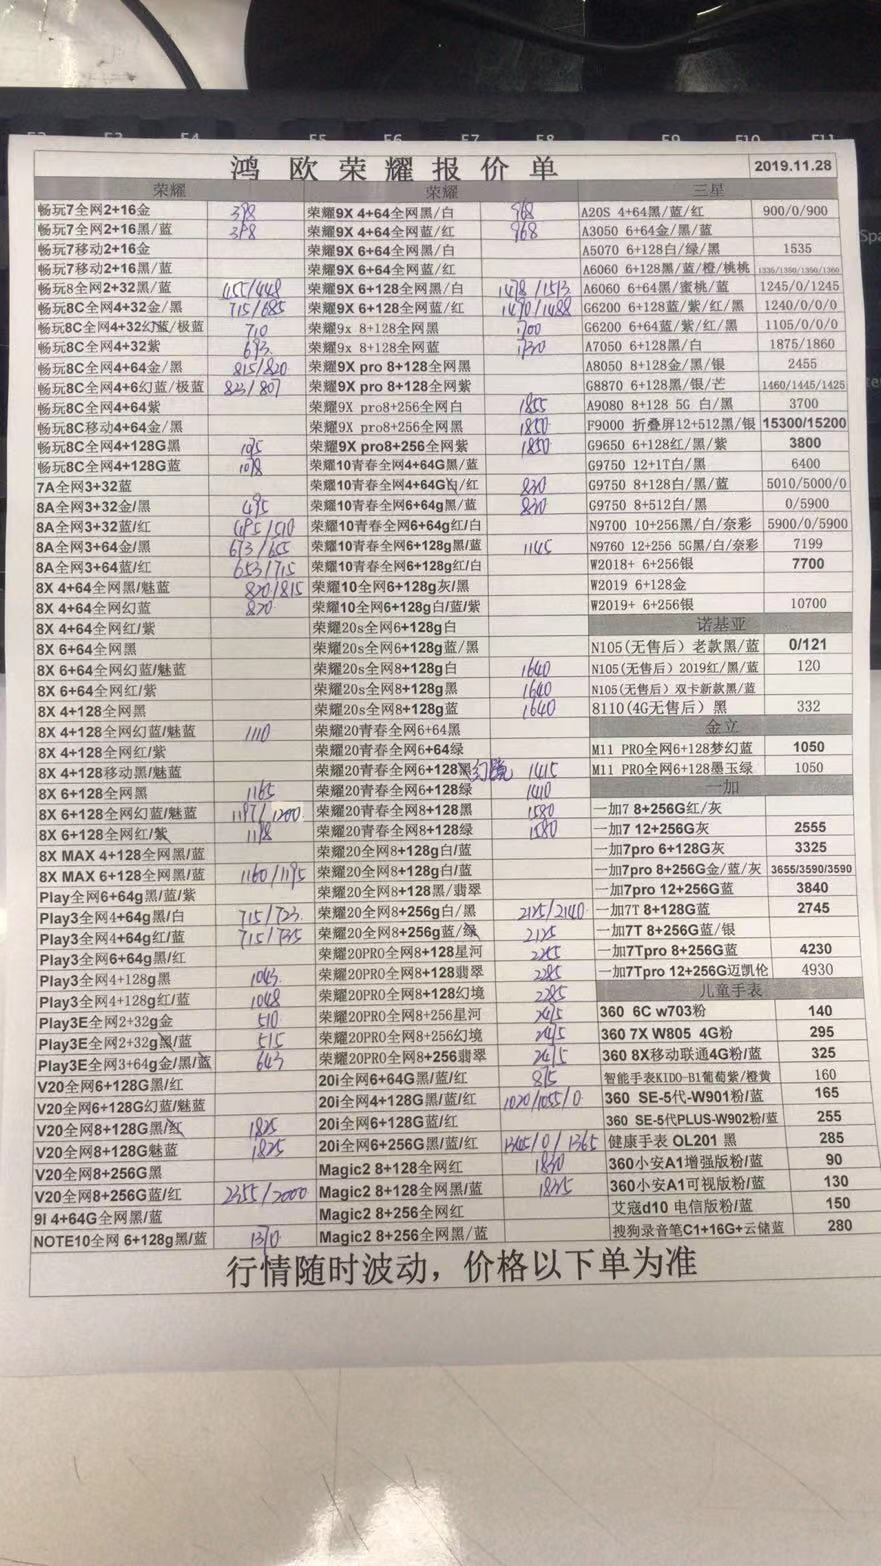 鸿欧荣耀报价单 2019.11.28
荣耀 荣耀 三星
畅玩7全网2+16金 398 荣耀9X 4+64全网黑/白 968 A20S 4+64黑/蓝/红 900/0/900
畅玩7全网2+16黑/蓝 398 荣耀9X 4+64全网蓝/红 968 A3050 6+64金/黑/蓝
畅玩7移动2+16金 荣耀9X 6+64全网黑/白 A5070 6+128白/绿/黑 1535
畅玩7移动2+16黑/蓝 荣耀9X 6+64全网蓝/红 A6060 6+128黑/蓝/橙/桃桃 1335/1350/1350/1360
畅玩8全网2+32黑/蓝 455/448 荣耀9X 6+128全网黑/白 1478/1513 A6060 6+64黑/蜜桃/蓝 1245/0/1245
畅玩8C全网4+32金/黑 715/685 荣耀9X 6+128全网蓝/红 1490/1488 G6200 6+128蓝/紫/红/黑 1240/0/0/0
畅玩8C全网4+32幻蓝/极蓝 710 荣耀9x 8+128全网黑 1700 G6200 6+64蓝/紫/红/黑 1105/0/0/0
畅玩8C全网4+32紫 693 荣耀9x 8+128全网蓝 1730 A7050 6+128黑/白 1875/1860
畅玩8C全网4+64金/黑 815/820 荣耀9X pro 8+128全网黑 A8050 8+128金/黑/银 2455
畅玩8C全网4+6幻蓝/极蓝 823/807 荣耀9X pro 8+128全网紫 G8870 6+128黑/银/芒 1460/1445/1425
畅玩8C全网4+64紫 荣耀9X pro8+256全网白 1855 A9080 8+128 5G 白/黑 3700
畅玩8C移动4+64金/黑 荣耀9X pro8+256全网黑 1850 F9000 折叠屏12+512黑/银 15300/15200
畅玩8C全网4+128G黑 荣耀9X pro8+256全网紫 1850 G9650 6+128红/黑/紫 3800
畅玩8C全网4+128G蓝 荣耀10青春全网4+64G黑/蓝 G9750 12+1T白/黑 6400
7A全网3+32蓝 荣耀10青春全网4+64G白/红 830 G9750 8+128白/黑/蓝 5010/5000/0
8A全网3+32金/黑 495 荣耀10青春全网6+64g黑/蓝 830 G9750 8+512白/黑 0/5900
8A全网3+32蓝/红 495/510 荣耀10青春全网6+64g红/白 N9700 10+256黑/白/奈彩 5900/0/5900
8A全网3+64金/黑 673/655 荣耀10青春全网6+128g黑/蓝 1145 N9760 12+256 5G黑/白/奈彩 7199
8A全网3+64蓝/红 653/715 荣耀10青春全网6+128g红/白 W2018+ 6+256银 7700
8X 4+64全网黑/魅蓝 820/815 荣耀10全网6+128g灰/黑 W2019 6+128金
8X 4+64全网幻蓝 820 荣耀10全网6+128g白/蓝/紫 W2019+ 6+256银 10700
8X 4+64全网红/紫 荣耀20s全网6+128g白 诺基亚
8X 6+64全网黑 荣耀20s全网6+128g蓝/黑 N105(无售后）老款黑/蓝 0/121
8X 6+64全网幻蓝/魅蓝 荣耀20s全网8+128g白 1640 N105(无售后）2019红/黑/蓝 120
8X 6+64全网红/紫 荣耀20s全网8+128g黑 1640 N105(无售后）双卡新款黑/蓝
8X 4+128全网黑 荣耀20s全网8+128g蓝 1640 8110(4G无售后）黑 332
8X 4+128全网幻蓝/魅蓝 1110 荣耀20青春全网6+64黑 金立
8X 4+128全网红/紫 荣耀20青春全网6+64绿 M11 PRO全网6+128梦幻蓝 1050
8X 4+128移动黑/魅蓝 荣耀20青春全网6+128黑幻境 1415 M11 PRO全网6+128墨玉绿 1050
8X 6+128全网黑 1165 荣耀20青春全网6+128绿 1410 一加
8X 6+128全网幻蓝/魅蓝 1197/1200 荣耀20青春全网8+128黑 1580 一加7 8+256G红/灰
8X 6+128全网红/紫 1198 荣耀20青春全网8+128绿 1580 一加7 12+256G灰 2555
8X MAX 4+128全网黑/蓝 荣耀20全网8+128g白/蓝 一加7pro 6+128G灰 3325
8X MAX 6+128全网黑/蓝 1160/1195 荣耀20全网8+128g白/蓝 一加7pro 8+256G金/蓝/灰 3655/3590/3590
Play全网6+64g黑/蓝/紫 荣耀20全网8+128黑/翡翠 一加7pro 12+256G蓝 3840
Play3全网4+64g黑/白 715/723 荣耀20全网8+256g白/黑 2125/2140 一加7T 8+128G蓝 2745
Play3全网4+64g红/蓝 715/735 荣耀20全网8+256g蓝/绿 2125 一加7T 8+256G蓝/银
Play3全网6+64g黑/红 荣耀20PRO全网8+128星河 2255 一加7Tpro 8+256G蓝 4230
Play3全网4+128g黑 1043 荣耀20PRO全网8+128翡翠 2285 一加7Tpro 12+256G迈凯伦 4930
Play3全网4+128g红/蓝 1048 荣耀20PRO全网8+128幻境 2285 儿童手表
Play3E全网2+32g金 510 荣耀20PRO全网8+256星河 2415 360 6C w703粉 140
Play3E全网2+32g黑/蓝 515 荣耀20PRO全网8+256幻境 2415 360 7X W805 4G粉 295
Play3E全网3+64g金/黑/蓝 643 荣耀20PRO全网8+256翡翠 2415 360 8X移动联通4G粉/蓝 325
V20全网6+128G黑/红 20i全网6+64G黑/蓝/红 875 智能手表KIDO-B1葡萄紫/橙黄 160
V20全网6+128G幻蓝/魅蓝 20i全网4+128G黑/蓝/红 1020/1055/0 360 SE-5代-W901粉/蓝 165
V20全网8+128G黑/红 1825 20i全网6+128G蓝/红 360 SE-5代PLUS-W902粉/蓝 255
V20全网8+128G魅蓝 1825 20i全网6+256G黑/蓝/红 1345/0/1365 健康手表 OL201 黑 285
V20全网8+256G黑 Magic2 8+128全网红 1830 360小安A1增强版粉/蓝 90
V20全网8+256G蓝/红 2355/2000 Magic2 8+128全网黑/蓝 1825 360小安A1可视版粉/蓝 130
9I 4+64G全网黑/蓝 Magic2 8+256全网红 艾蔻d10 电信版粉/蓝 150
NOTE10全网 6+128g黑/蓝 1370 Magic2 8+256全网黑/蓝 搜狗录音笔C1+16G+云储蓝 280
行情随时波动，价格以下单为准